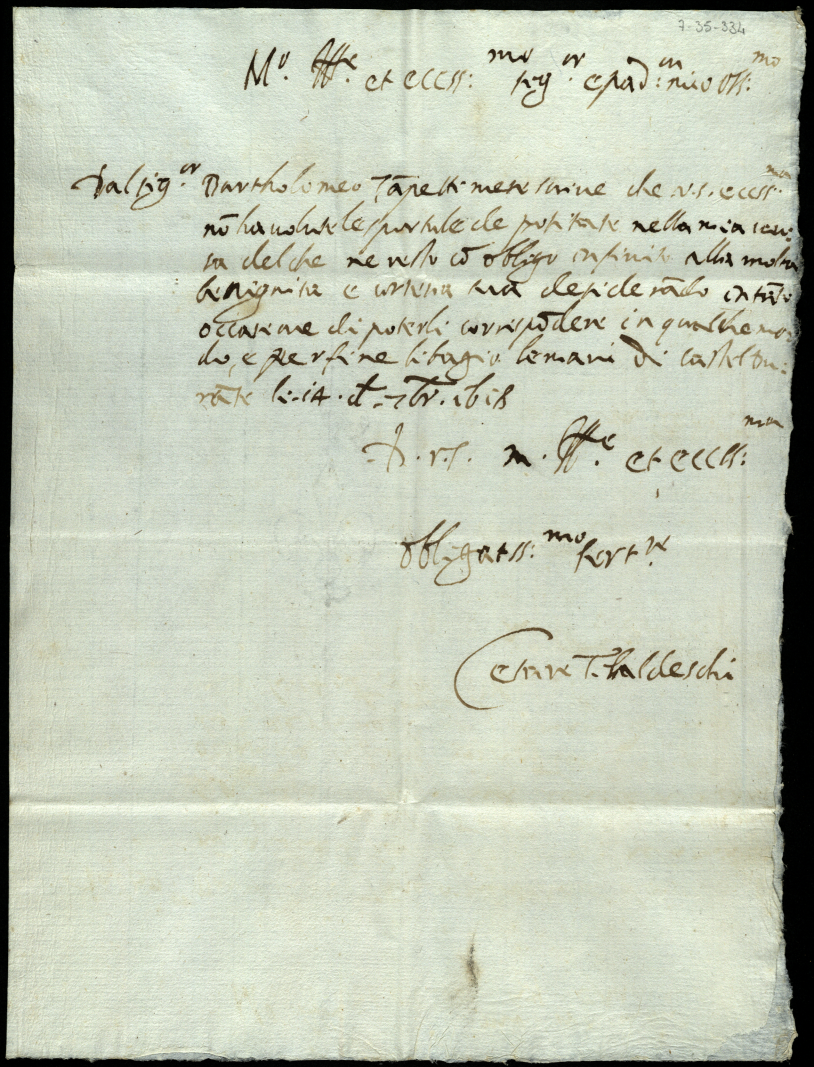 7-35-334
M.o Ill.re et eccss:mo sig.or e pad:on mio oss:mo
Dal sig.or Bartholomeo Tāpetti me si scrive che v.s. eccss:ma
nō ha volute le sportule de positate nella mia cau:
sa del che ne resto cō obligo infinito alla molta
benignita e cortesia sua desiderādo intāto
occasione di poterli correspōdere in qualche mo:
do, e per fine li bagio le mani di casteldu:
rāte li .14. d 7br. 1618
D. v. s. m. Ill.re et eccss:ma
obligatss:mo ser.re
Cesare T. baldeschi